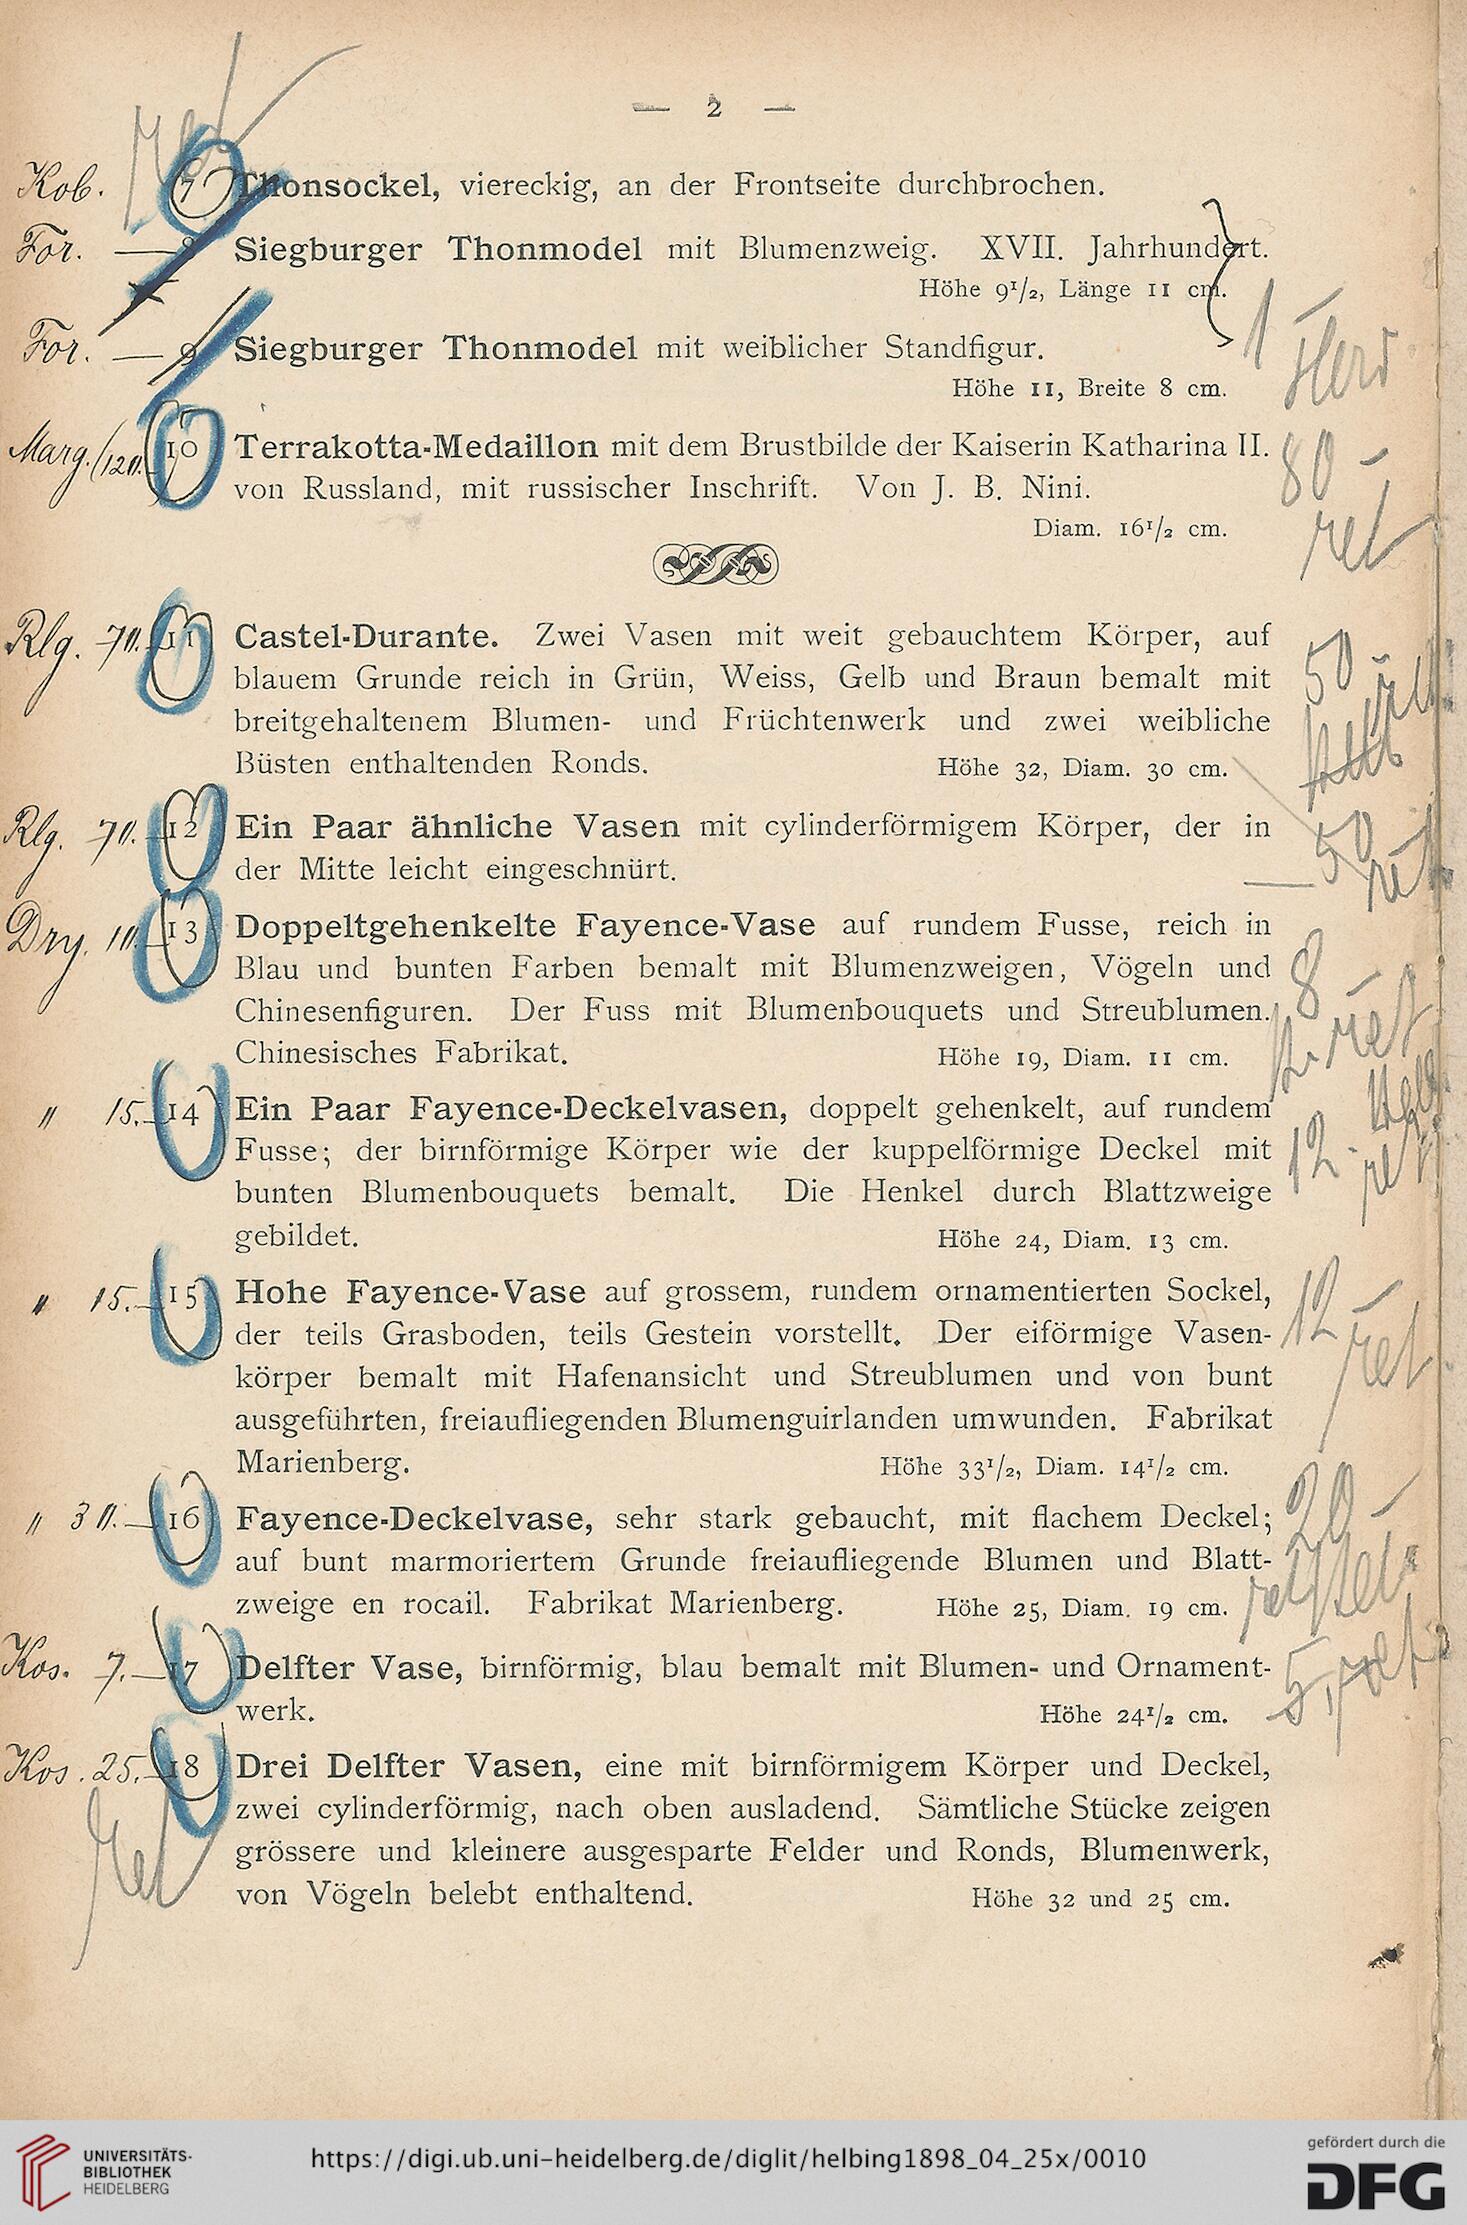 — 2 —
Kob. 7 Thonsockel, viereckig, an der Frontseite durchbrochen.
For. — 8 Siegburger Thonmodel mit Blumenzweig. XVII. Jahrhundert.
Höhe 9¹/₂, Länge 11 cm.
For. — 9 Siegburger Thonmodel mit weiblicher Standfigur.
Höhe 11, Breite 8 cm.
Marg. 10 Terrakotta-Medaillon mit dem Brustbilde der Kaiserin Katharina II. 80 –
von Russland, mit russischer Inschrift. Von J. B. Nini. ret
Diam. 16¹/₂ cm.
Rlg. 70. 11 Castel-Durante. Zwei Vasen mit weit gebauchtem Körper, auf 50 –
blauem Grunde reich in Grün, Weiss, Gelb und Braun bemalt mit
breitgehaltenem Blumen- und Früchtenwerk und zwei weibliche
Büsten enthaltenden Ronds. Höhe 32, Diam. 30 cm.
Rlg. 70. — 12 Ein Paar ähnliche Vasen mit cylinderförmigem Körper, der in 50
der Mitte leicht eingeschnürt. ret
Dry. 10. — 13 Doppeltgehenkelte Fayence-Vase auf rundem Fusse, reich in
Blau und bunten Farben bemalt mit Blumenzweigen, Vögeln und 8
Chinesenfiguren. Der Fuss mit Blumenbouquets und Streublumen. ret
Chinesisches Fabrikat. Höhe 19, Diam. 11 cm.
" 15. — 14 Ein Paar Fayence-Deckelvasen, doppelt gehenkelt, auf rundem
Fusse; der birnförmige Körper wie der kuppelförmige Deckel mit 12. ret
bunten Blumenbouquets bemalt. Die Henkel durch Blattzweige
gebildet. Höhe 24, Diam. 13 cm.
" 15. — 15 Hohe Fayence-Vase auf grossem, rundem ornamentierten Sockel, 12
der teils Grasboden, teils Gestein vorstellt. Der eiförmige Vasen- ret
körper bemalt mit Hafenansicht und Streublumen und von bunt
ausgeführten, freiaufliegenden Blumenguirlanden umwunden. Fabrikat
Marienberg. Höhe 33¹/₂, Diam. 14¹/₂ cm.
" 30. — 16 Fayence-Deckelvase, sehr stark gebaucht, mit flachem Deckel; 20 –
auf bunt marmoriertem Grunde freiaufliegende Blumen und Blatt-
zweige en rocail. Fabrikat Marienberg. Höhe 25, Diam. 19 cm. ret
Kos. 7. — 17 Delfter Vase, birnförmig, blau bemalt mit Blumen- und Ornament- 5, ret
werk. Höhe 24¹/₂ cm.
Kos. 25. — 18 Drei Delfter Vasen, eine mit birnförmigem Körper und Deckel,
ret zwei cylinderförmig, nach oben ausladend. Sämtliche Stücke zeigen
grössere und kleinere ausgesparte Felder und Ronds, Blumenwerk,
von Vögeln belebt enthaltend. Höhe 32 und 25 cm.
UNIVERSITÄTS-
BIBLIOTHEK
HEIDELBERG
https://digi.ub.uni-heidelberg.de/diglit/helbing1898_04_25x/0010
gefördert durch die
DFG